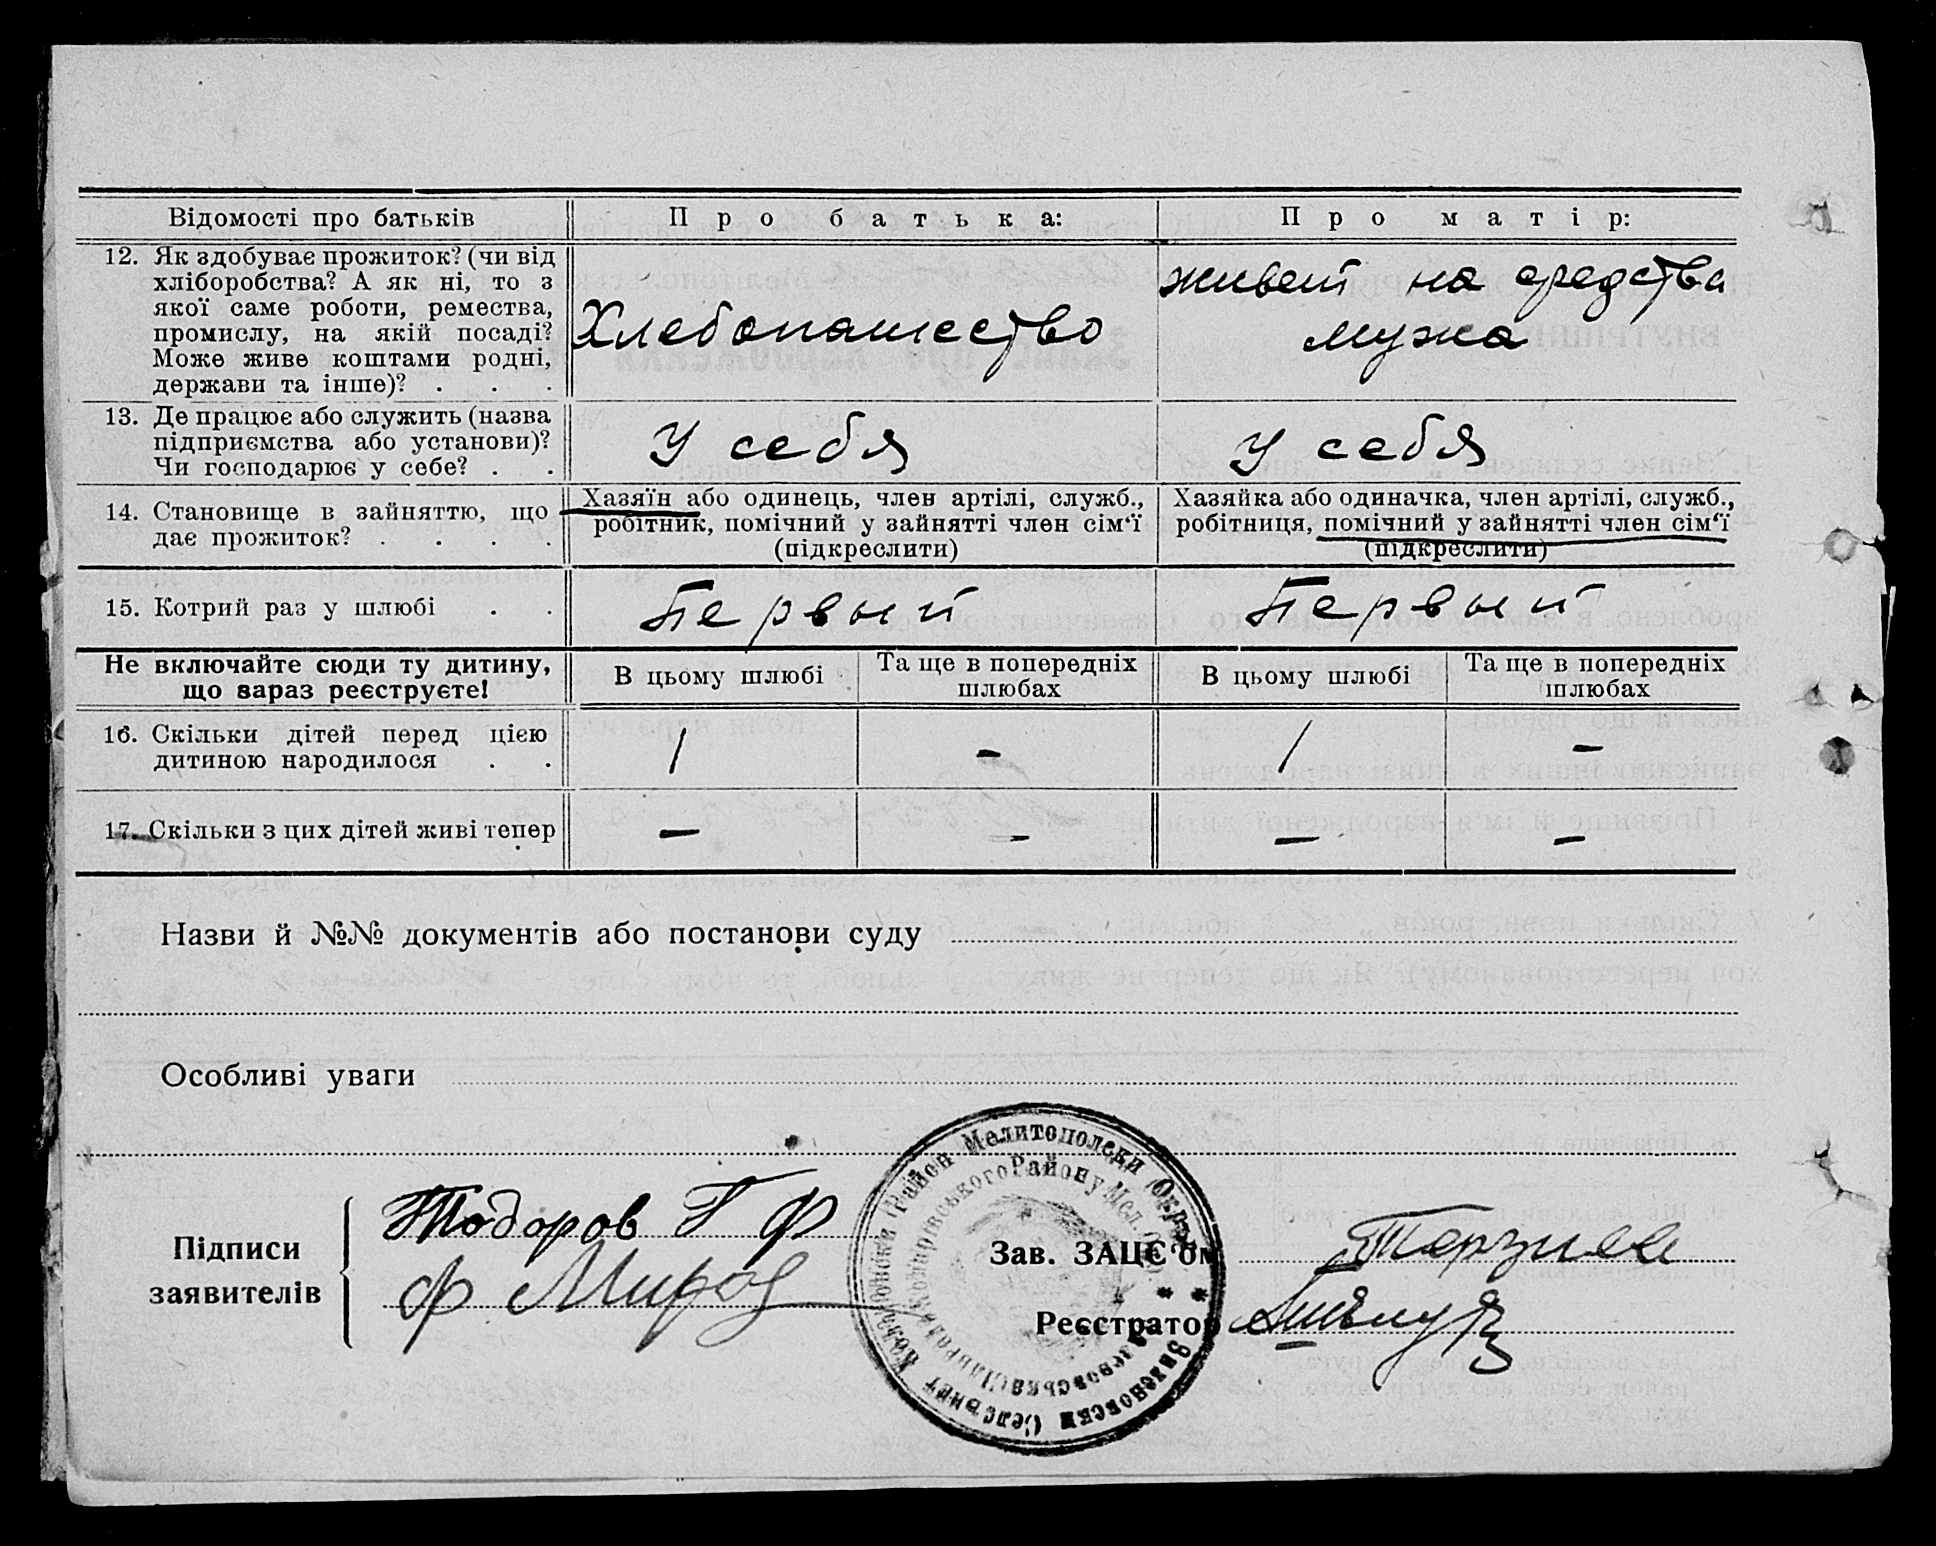 Відомості про батьків Про батька: Про матір:
12. Як здобуває прожиток? (чи від
хліборобства? А як ні, то з
якої саме роботи, ремества,
промислу, на якій посаді?
Може живе коштами родні,
держави та інше)? . . .
Хлебопашество
живет на средства
мужа
13. Де працює або служить (назва
підприємства або установи)?
Чи господарює у себе? . .
У себя
У себя
14. Становище в зайняттю, що
дає прожиток? . . . .
Хазяїн або одинець, член артілі, служб.,
робітник, помічний у зайнятті член сім'ї
(підкреслити)
Хазяйка або одиначка, член артілі, служб.,
робітниця, помічний у зайнятті член сім'ї
(підкреслити)
15. Котрий раз у шлюбі . . Первый Первый
Не включайте сюди ту дитину,
що зараз реєструєте!
В цьому шлюбі
Та ще в попередніх
шлюбах
В цьому шлюбі
Та ще в попередніх
шлюбах
16. Скільки дітей перед цією
дитиною народилося . .
1 - 1 -
17. Скільки з цих дітей живі тепер - - - -
Назви й №№ документів або постанови суду
Особливі уваги
Підписи
заявителів
Тодоров Г Ф
Ф Миров
Зав. ЗАЦС'ом Терзиев
Реєстратор
Район Мелитополски Окръг
Селсъвет
Району Мел.